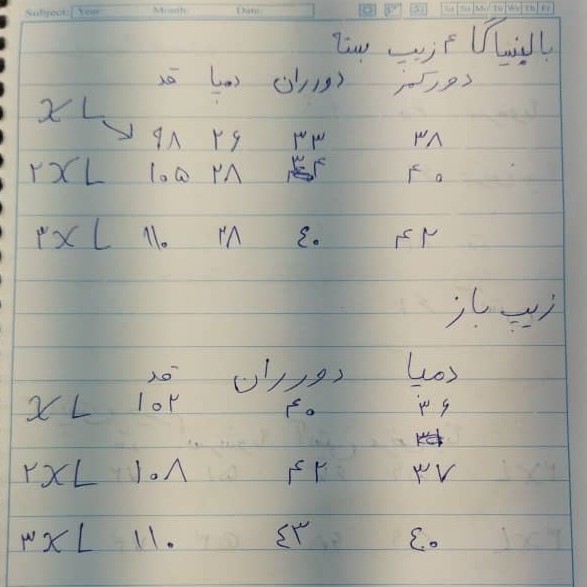 Subject: Year: Month: Date: Sa Su Mo Tu We Th Fr
بالنسیاگا ۴ زیپ بسته
دورکمر دورران دمپا قد
XL ۹۸ ۲۶ ۳۳ ۳۸
۲XL ۱۰۵ ۲۸ ۴۰
۳XL ۱۱۰ ۲۸ ۴۰ ۴۲
زیپ باز
دمپا دورران قد
XL ۱۰۲ ۴۰ ۳۶
۲XL ۱۰۸ ۴۲ ۳۷
۳XL ۱۱۰ ۴۳ ۴۰